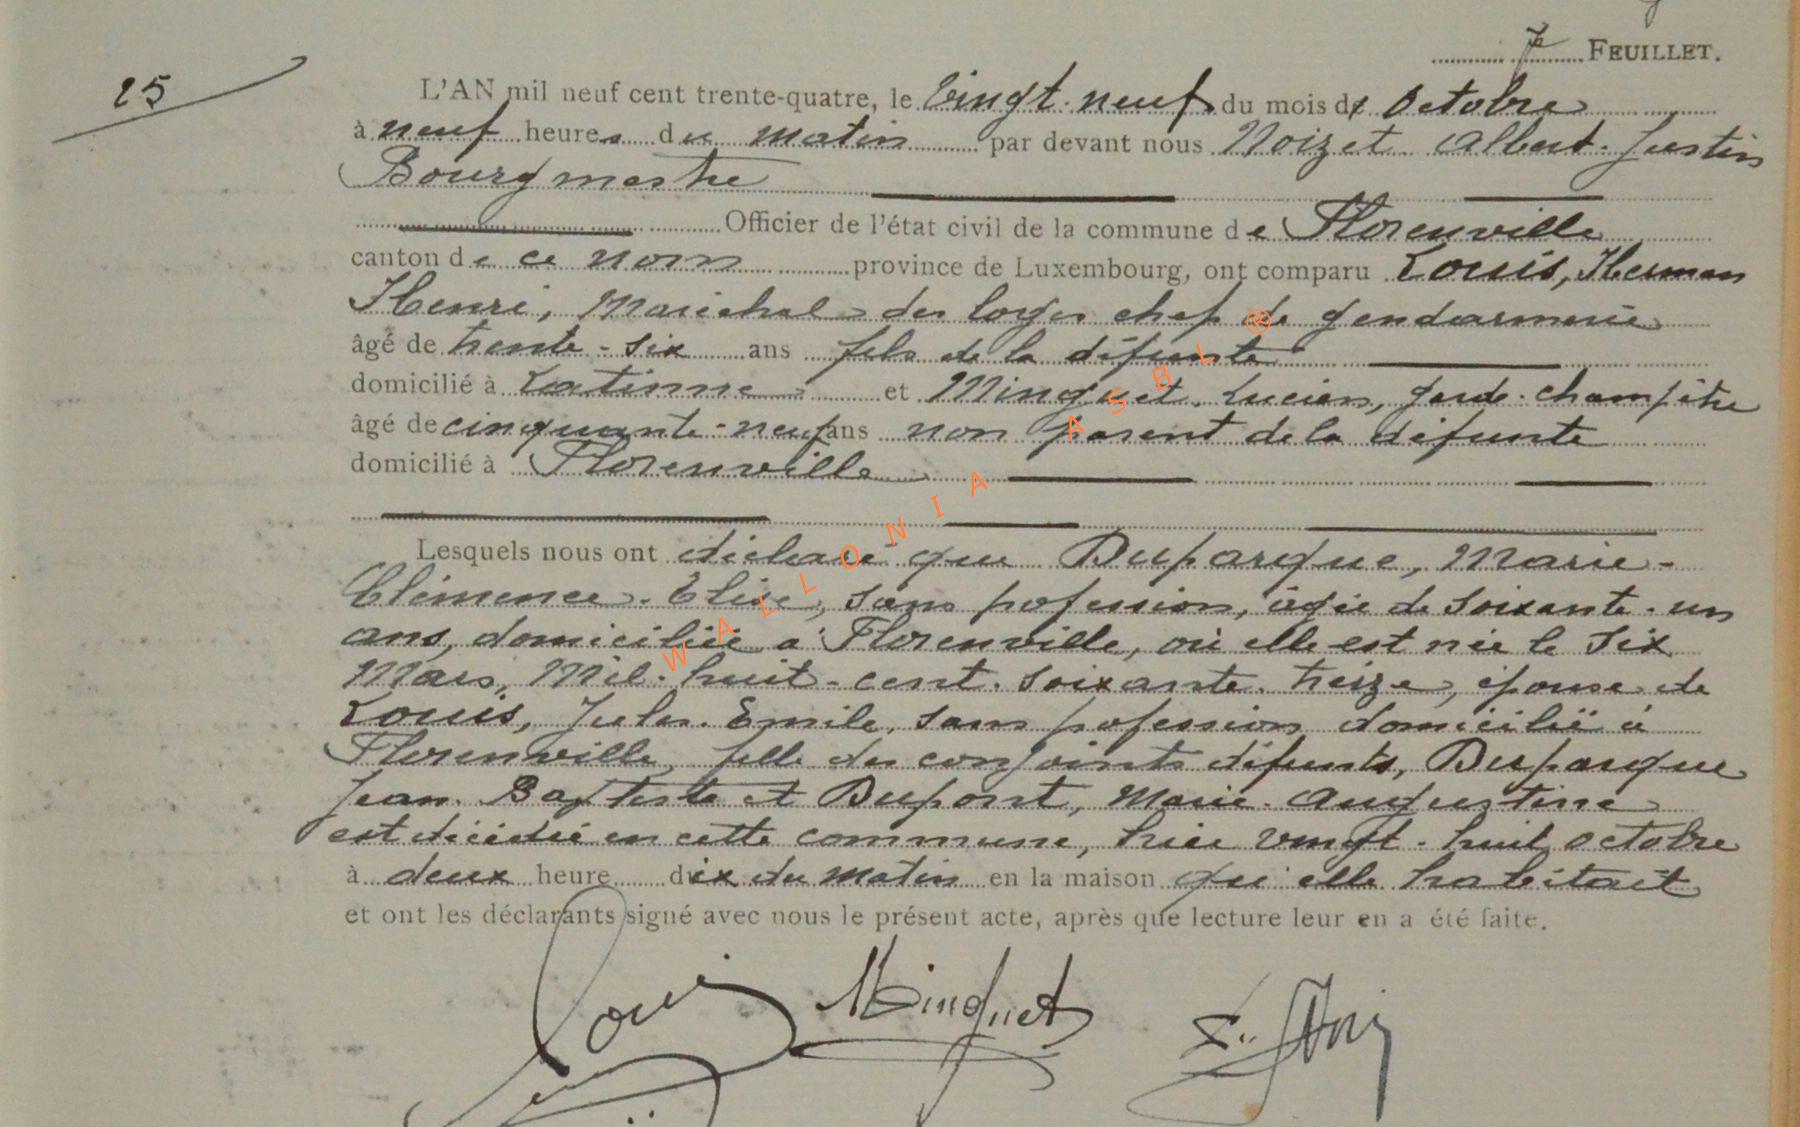 7e FEUILLET.
25
L'AN mil neuf cent trente-quatre, le vingt-neuf du mois de Octobre
à neuf heures du matin par devant nous Noizet Albert-Justin
Bourgmestre
Officier de l'état civil de la commune de Florenville
canton de ce nom province de Luxembourg, ont comparu Louis, Herman
Henri, Maréchal des logis chef de gendarmerie
âgé de trente-six ans fils de la défunte
domicilié à Latinne et Minguet, Lucien, garde-champêtre
âgé de cinquante-neuf ans non parent de la défunte
domicilié à Florenville
Lesquels nous ont déclaré que Duparque, Marie-
Clémence-Elise, sans profession, âgée de soixante-un
ans, domiciliée à Florenville, où elle est née le six
Mars, Mil-huit-cent-soixante-treize, épouse de
Louis, Jules-Emile, sans profession domicilié à
Florenville, fille des conjoints défunts, Duparque
Jean-Baptiste et Dupont, Marie-Augustine
est décédée en cette commune, hier vingt-huit octobre
à deux heure dix du matin en la maison qu'elle habitait
et ont les déclarants signé avec nous le présent acte, après que lecture leur en a été faite.
Louis Minguet
WALLONIA ASBL ®